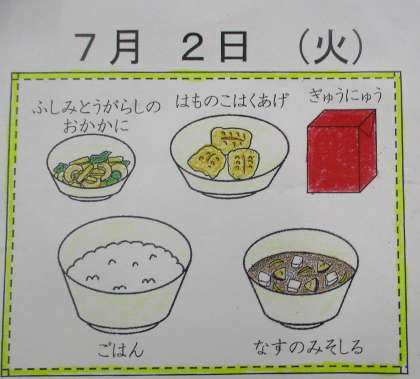 ７月 ２日 （火）
ふしみとうがらしの
おかかに
はものこはくあげ
ぎゅうにゅう
ごはん
なすのみそしる